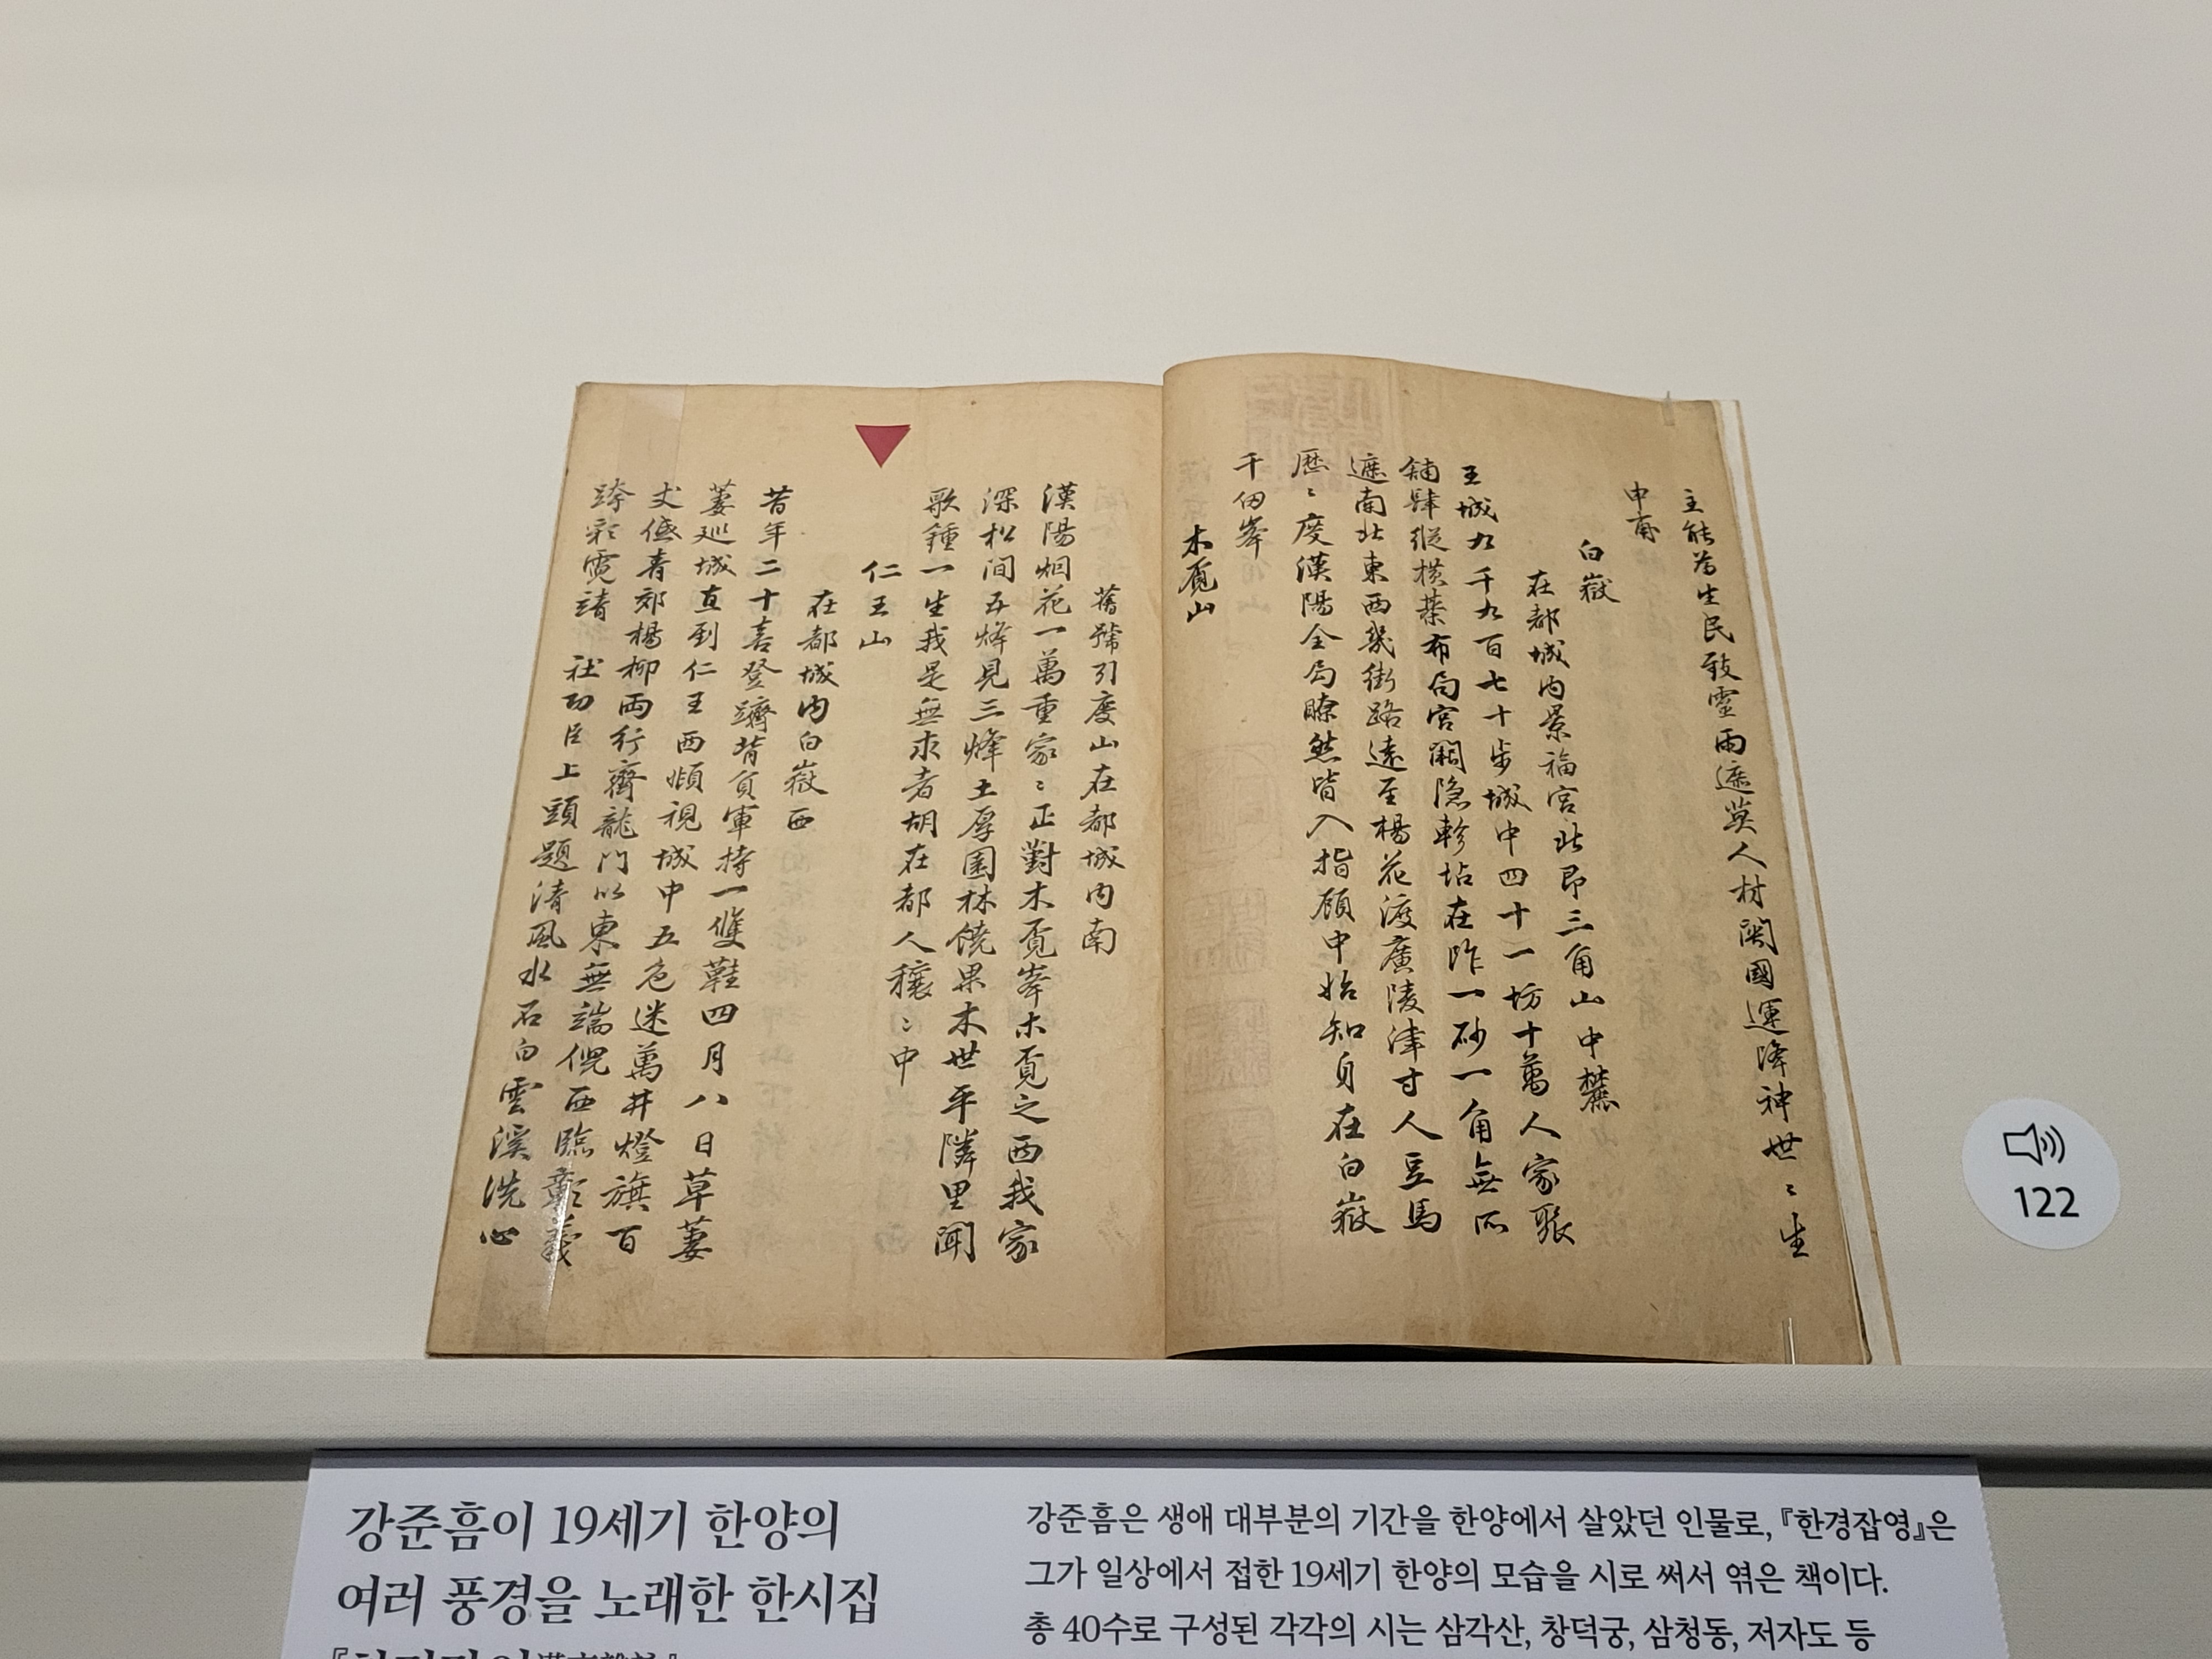 主能為生民致靈雨遮莫人材関國運降神世〻生
申甫
白嶽
在都城內景福宮北即三角山中麓
王城九千九百七十步城中四十一坊十萬人家張
鋪肆縱橫棊布局宮闕隐軫坫在昨一砂一角無所
遮南北東西幾街路遠至楊花渡廣陵津寸人豆馬
歷〻度漢陽全局瞭然皆入指顧中始知身在白嶽
千仞峯
木覓山
舊號引慶山在都城內南
漢陽烟花一萬重家〻正對木覓峯木覓之西我家
深松間五烽見三烽土厚園林饒果木世平隣里聞
歌鍾一生我是無求者胡在都人穰〻中
仁王山
在都城內白嶽西
昔年二十喜登躋背負軍持一雙鞋四月八日草萋
萋廵城直到仁王西頫視城中五色迷萬井燈旗百
丈低青郊楊柳両行齊龍門以東無端倪西臨彰義
跨彩霓請 社功臣上頭題清風水石白雲溪洗心
122
강준흠이 19세기 한양의
여러 풍경을 노래한 한시집
강준흠은 생애 대부분의 기간을 한양에서 살았던 인물로, 『한경잡영』은
그가 일상에서 접한 19세기 한양의 모습을 시로 써서 엮은 책이다.
총 40수로 구성된 각각의 시는 삼각산, 창덕궁, 삼청동, 저자도 등